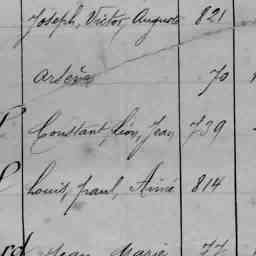 Joseph, Victor, Auguste 821
Arsène 70
Constant, Léon, Jean 739
Louis, Paul, Aimé 814
Jean Marie 77